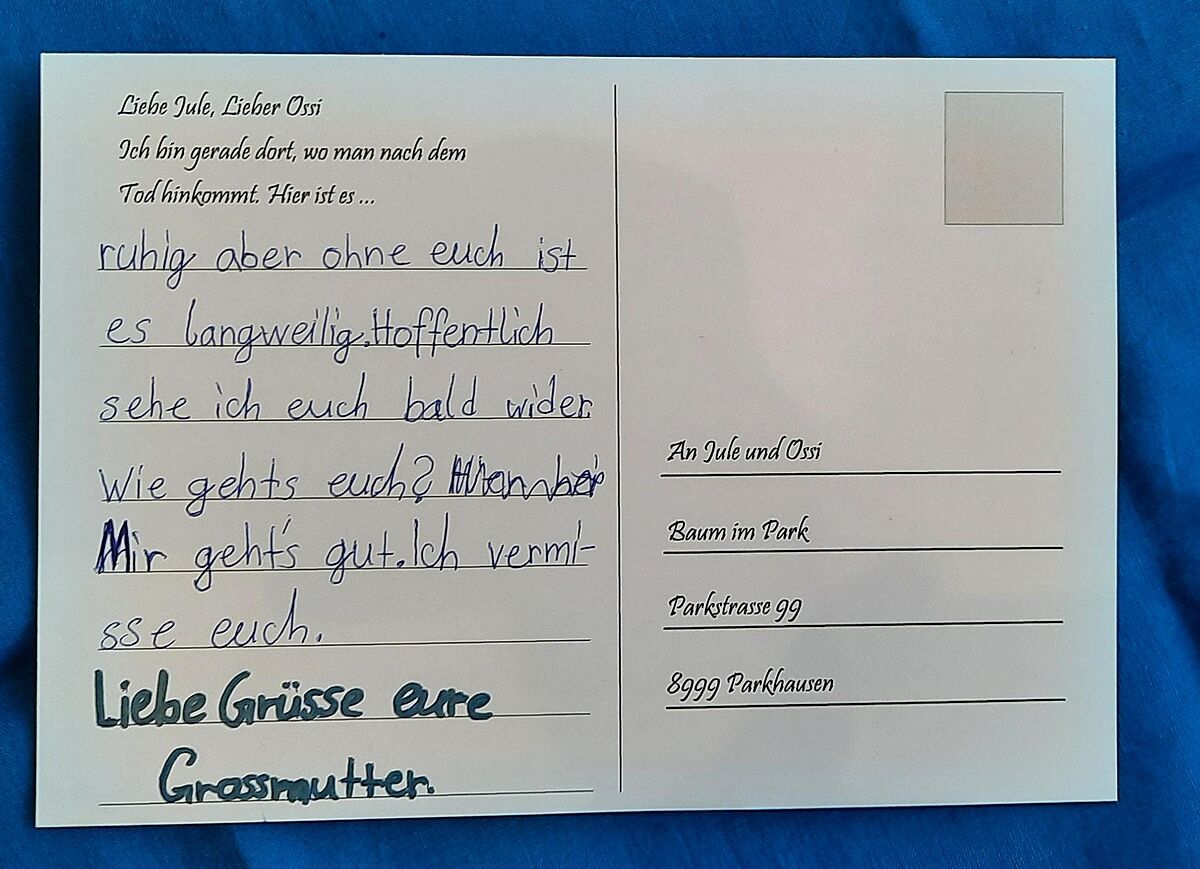 Liebe Jule, Lieber Ossi
Ich bin gerade dort, wo man nach dem
Tod hinkommt. Hier ist es ...
ruhig aber ohne euch ist
es langweilig. Hoffentlich
sehe ich euch bald wider.
Wie gehts euch?
Mir geht's gut. Ich vermi-
sse euch.
Liebe Grüsse eure
Grossmutter.
An Jule und Ossi
Baum im Park
Parkstrasse 99
8999 Parkhausen